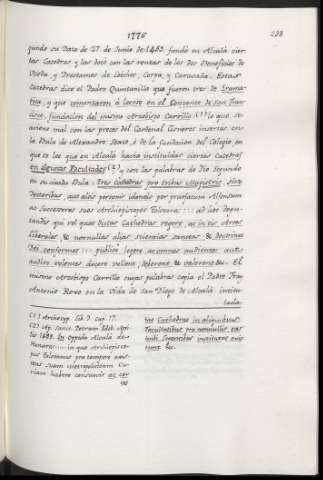 1776
228
gundo su Data de 27 de Junio de 1463. fundó en Alcalá cier
tas Catedras y las dotó con las rentas de los dos Beneficios de
Uceda, y Prestamos de Loeches, Corpa, y Caravaña. Estas
Catedras dice el Padre Quintanilla que fueron tres de Grama-
tica, y que comenzaron à leerse en el Convento de San Fran
cisco, fundacion del mismo Arzobispo Carrillo (1) lo que se
aviene mal con las preces del Cardenal Cisneros insertas en
la Bula de Alexandro Sexto, ò de la fundacion del Colegio, en
que se lee que en Alcalà havia instituidas ciertas Catedras
en algunas Facultades (2) y con las palabras de Pio Segundo
en su citada Bula: tres Cathedras pro tribus Magistris, sive
Doctoribus, aut aliis personis idoneis per praefatum Alfonsum
ac Successores suos Archiepiscopos Toletanos ::: ad hoc depu-
tandis qui vel quas dictas Cathedras regere, ac in eis Artes
liberales, & nonnullas alias sciencias, Sanctae, & doctrinae
Dei conformes ::: publicè legere, ac omnes audientes, aut
audire volentes docere vellent, deberent, & valerent &c. El
mismo Arzobispo Carrillo cuyas palabras copia el Padre Fray
Antonio Roxo en la Vida de San Diego de Alcalà intitu-
lada
(1) Archetyp. Lib. 3. Cap. 17.
(2) Ap. Sanct. Petrum Edit. Apri
lis 1499. In Oppido Alcalà de-
Henares :::: in quo Archiepisco-
pus Toletanus pro tempore exis-
tens Suam Metropolitanam Cu-
riam habere consuevit ac cer
tas
tas Cathedras in aliquibus
Facultatibus pro nonnullis eas
inibi Legentibus institutas exis
tunt &c.